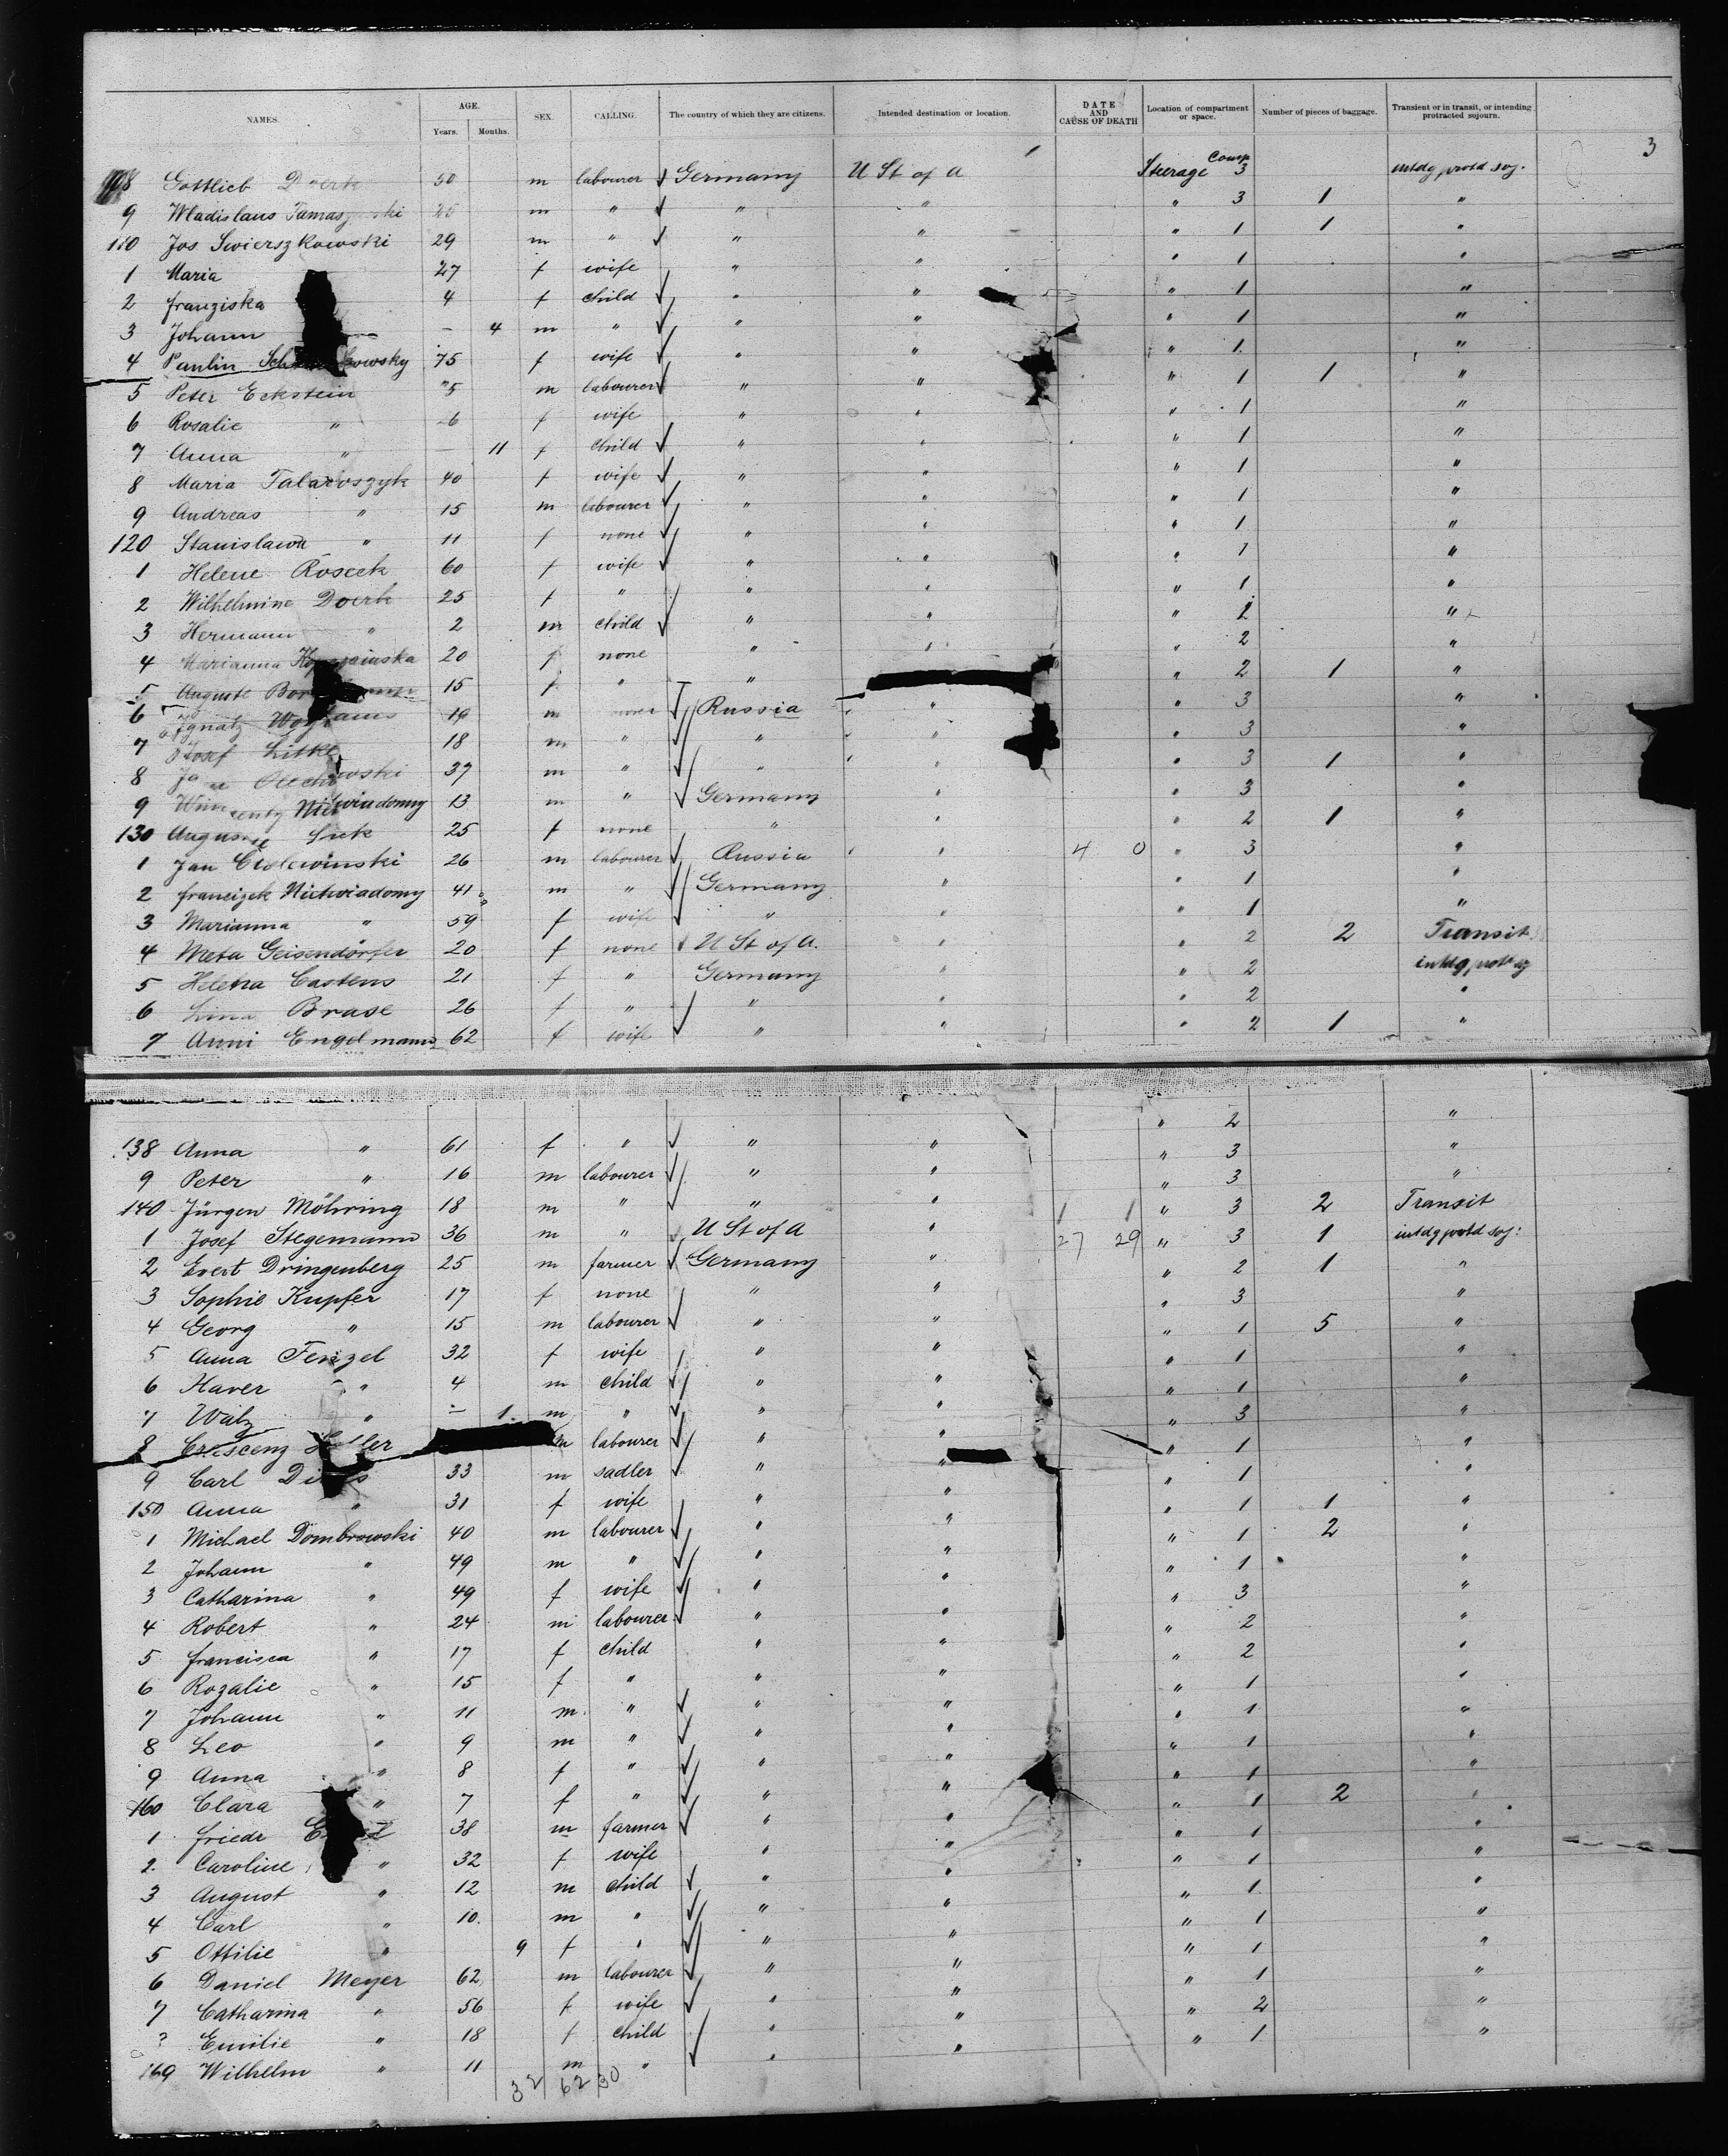 NAMES. AGE. Years. Months. SEX. CALLING. The country of which they are citizens. Intended destination or location. DATE AND CAUSE OF DEATH Location of compartment or space. Number of pieces of baggage. Transient or in transit, or intending protracted sojourn.
3
108 Gottlieb Doerk 50 m labourer Germany U St of A Steerage Comp 3 intdg protd soj.
9 Wladislaus 25 m " " " " 3 1 "
110 Jos Swierszkowski 29 m " " " " 1 1 "
1 Maria 27 f wife " " " 1 "
2 franziska 4 f child " " " 1 "
3 Johann – 4 m " " " " 1 "
4 Paulin 75 f wife " " " 1 "
5 Peter Eckstein m labourer " " " 1 1 "
6 Rosalie " f wife " " " 1 "
7 Anna " – 11 f child " " " 1 "
8 Maria 40 f wife " " " 1 "
9 Andreas " 15 m labourer " " " 1 "
120 Stanislawa " 11 f none " " " 1 "
1 Helene Roseck 60 f wife " " " 1 "
2 Wilhelmine Doerk 25 f " " " " 1 "
3 Hermann " 2 m child " " " 2 "
4 Marianna 20 f none " " " 2 "
5 Auguste 15 f " " " 2 1 "
6 Ignatz 19 m Russia " " 3 "
7 Josef Litke 18 m " " " " 3 "
8 37 m " " " " 3 1 "
9 13 m " Germany " " 3 "
130 25 f none " " " 2 1 "
1 Jan 26 m labourer Russia " 4 0 " 3 "
2 francizek Nietwiadomy 41 m " Germany " " 1 "
3 Marianna " 59 f wife " " " 1 "
4 Meta Geisendörfer 20 f none U St of A. " " 2 2 Transit
5 Helena Castens 21 f " Germany " " 2 intdg
6 Lina Brase 26 f " " " " 2 "
7 Anni Engelmann 62 f wife " " " 2 1 "
138 Anna " 61 f " " " " 2 "
9 Peter " 16 m labourer " " " 3 "
140 Jürgen Möhring 18 m " " " " 3 "
1 Josef Stegemann 36 m " U St of A " 1 1 " 3 2 Transit
2 Evert Dringenberg 25 m farmer Germany " 27 29 " 3 1 intdg protd soj:
3 Sophie Kupfer 17 f none " " " 2 1 "
4 Georg " 15 m labourer " " " 3 "
5 Anna Fenzel 32 f wife " " " 1 5 "
6 Xaver " 4 m child " " " 1 "
7 " – 1 m " " " " 1 "
8 Crescenz m labourer " " " 3 "
9 Carl 33 m sadler " " " 1 "
150 Anna " 31 f wife " " " 1 "
1 Michael Dombrowski 40 m labourer " " " 1 1 "
2 Johann " 49 m " " " " 1 2 "
3 Catharina " 49 f wife " " " 1 "
4 Robert " 24 m labourer " " " 3 "
5 francisca " 17 f child " " " 2 "
6 Rozalie " 15 f " " " " 2 "
7 Johann " 11 m " " " " 1 "
8 Leo " 9 m " " " " 1 "
9 Anna " 8 f " " " " 1 "
160 Clara " 7 f " " " " 1 "
1 friedr 38 m farmer " " " 1 2 "
2 Caroline " 32 f wife " " " 1 "
3 August " 12 m child " " " 1 "
4 Carl " 10 m " " " " 1 "
5 Ottilie " 9 f " " " " 1 "
6 Daniel Meyer 62 m labourer " " " 1 "
7 Catharina " 56 f wife " " " 1 "
Emilie " 18 f child " " " 2 "
169 Wilhelm " 11 m " " " " 1 "
32 62 30